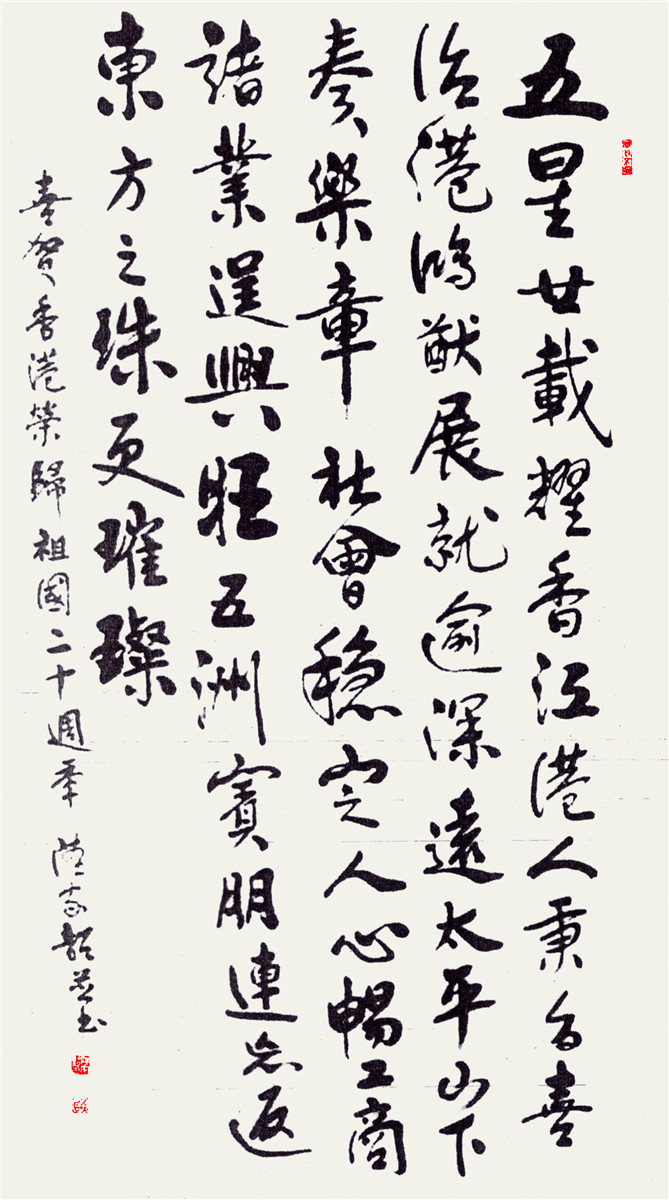 五星廿載耀香江港人喜
治港鴻猷展就逾深遠太平山下
奏樂章社會穩定人心暢工商
諸業逞興旺五洲賓朋連忘返
東方之珠更璀璨
喜賀香港榮歸祖國二十週年 並書